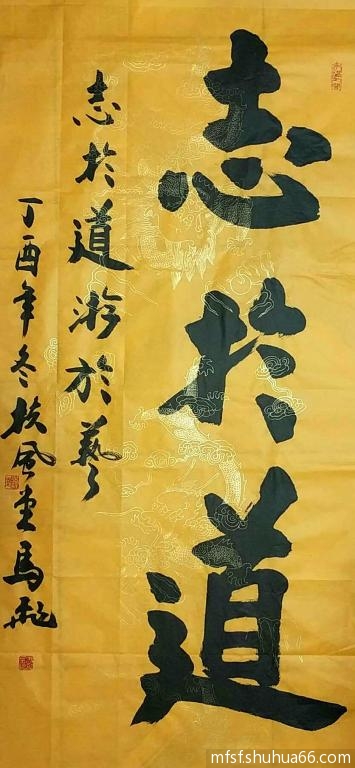 志於道
志於道游於藝
丁酉年冬扶風堂馬
mfsfshuhua66.com